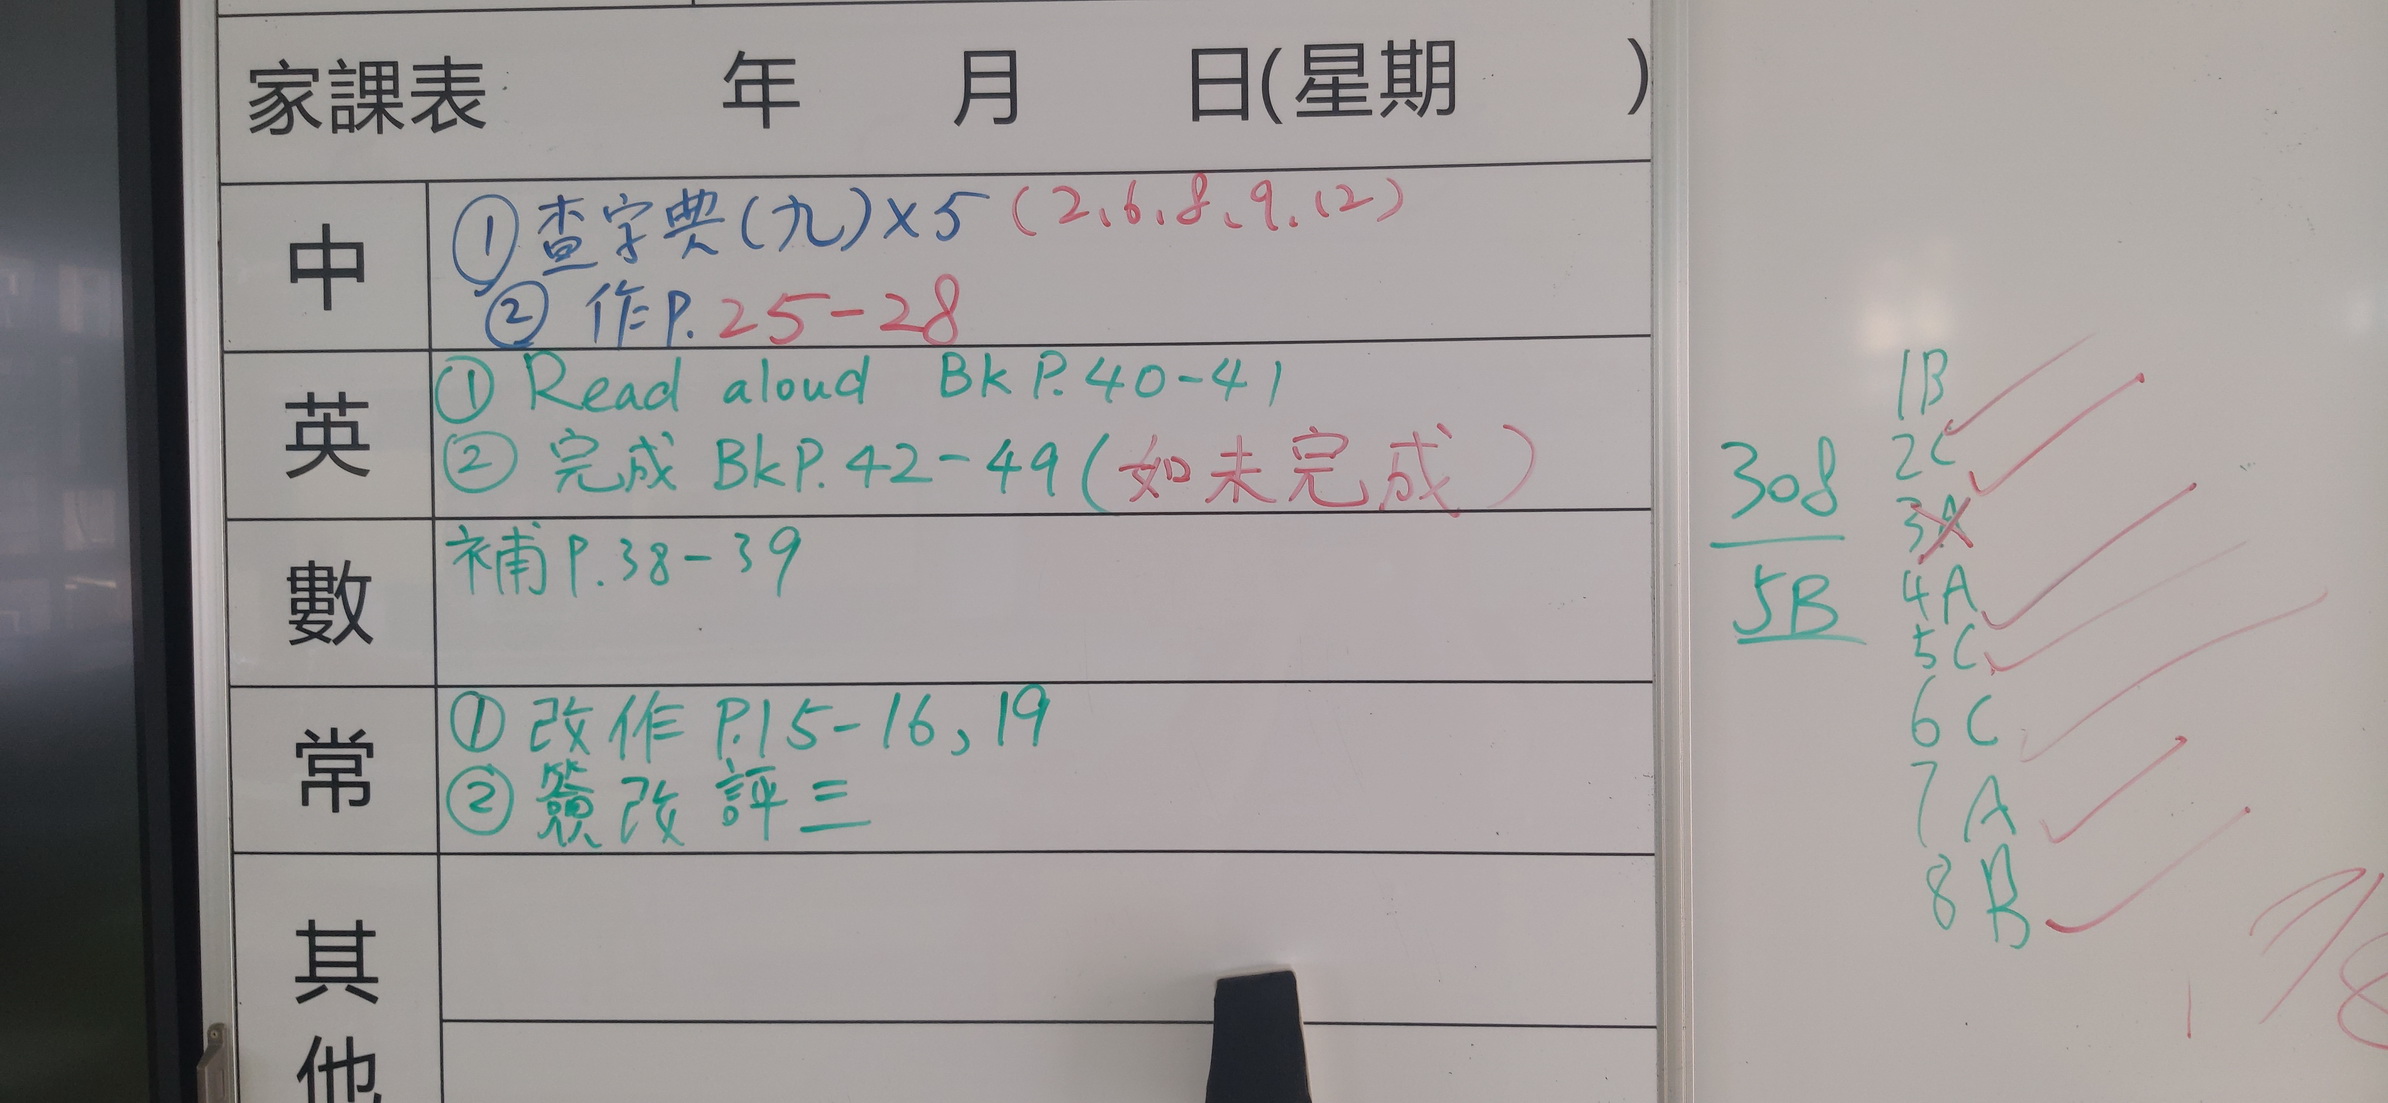 家課表 年 月 日(星期 )
中
①查字典(九)×5(2、6、8、9、12)
② 作P.25-28
英
① Read aloud BkP.40-41
② 完成 BkP.42-49(如未完成)
數
補P.38-39
常
① 改作 P.15-16, 19
② 簽改 評三
其他
308
5B
1B
2C
3A
4A
5C
6C
7A
8B